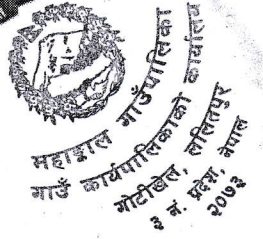 महाङ्काल गाउँपालिका
गाउँ कार्यपालिकाको कार्यालय
गोटीखेल, ललितपुर
३ नं. प्रदेश, नेपाल
२०७३